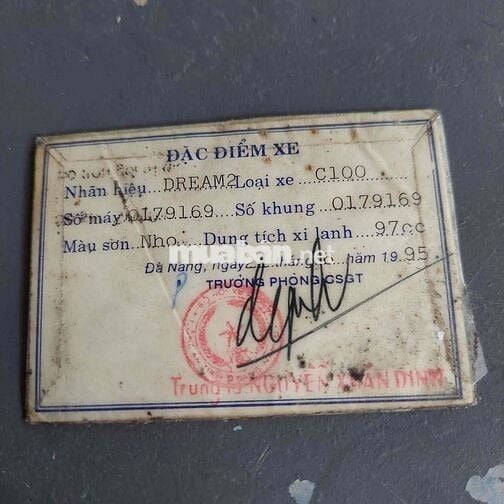 ĐẶC ĐIỂM XE
Nhãn hiệu DREAM2 Loại xe C100
Số máy 0179169 Số khung 0179169
Màu sơn Nho Dung tích xi lanh 97cc
muaban.net
Đà Nẵng, ngày tháng năm 1995
TRƯỞNG PHÒNG CSGT
Trung tá NGUYỄN XUÂN DINH